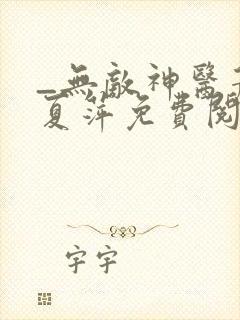 _無敵神醫
夏萍免費閱
宇宇